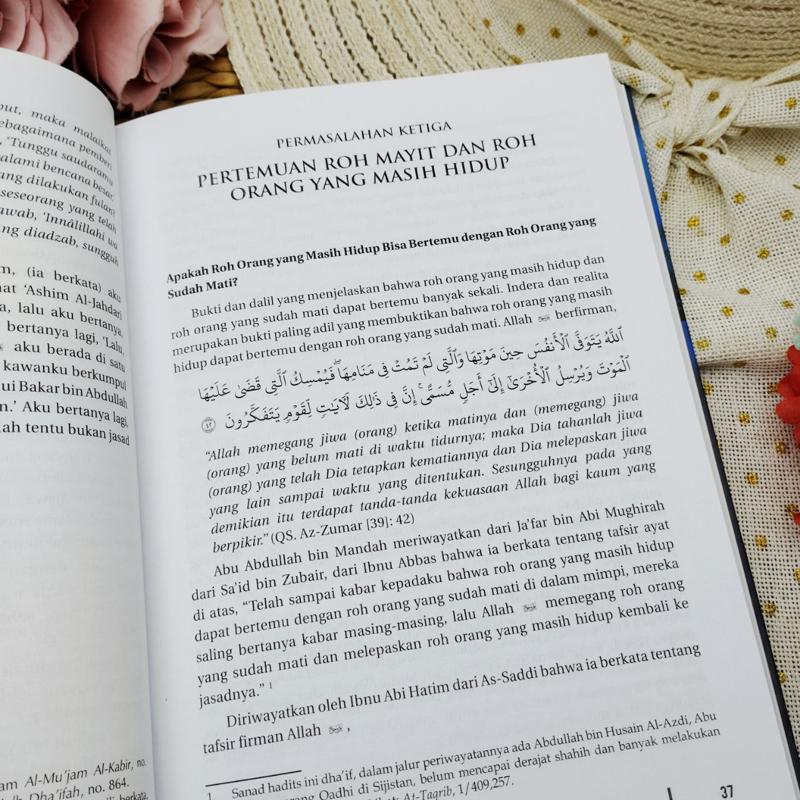 put, maka malaikat
sebagaimana pemberi
'Tunggu saudaramu
alami bencana besar.
ang dilakukan fulan?
seseorang yang telah
awab, 'Innâlillahi wa
ng diadzab, sungguh
m, (ia berkata) aku
at 'Ashim Al-Jahdari
a, lalu aku bertanya,
bertanya lagi, 'Lalu,
aku berada di satu
kawanku berkumpul
ui Bakar bin Abdullah
n.' Aku bertanya lagi,
lah tentu bukan jasad
am Al-Mu'jam Al-Kabir, no.
Dha'ifah, no. 864.
PERMASALAHAN KETIGA
PERTEMUAN ROH MAYIT DAN ROH
ORANG YANG MASIH HIDUP
Apakah Roh Orang yang Masih Hidup Bisa Bertemu dengan Roh Orang yang
Sudah Mati?
Bukti dan dalil yang menjelaskan bahwa roh orang yang masih hidup dan
roh orang yang sudah mati dapat bertemu banyak sekali. Indera dan realita
merupakan bukti paling adil yang membuktikan bahwa roh orang yang masih
hidup dapat bertemu dengan roh orang yang sudah mati. Allah ﷻ berfirman,
اللَّهُ يَتَوَفَّى الْأَنْفُسَ حِينَ مَوْتِهَا وَالَّتِي لَمْ تَمُتْ فِي مَنَامِهَا ۖ فَيُمْسِكُ الَّتِي قَضَىٰ عَلَيْهَا
الْمَوْتَ وَيُرْسِلُ الْأُخْرَىٰ إِلَىٰ أَجَلٍ مُسَمًّى ۚ إِنَّ فِي ذَٰلِكَ لَآيَاتٍ لِقَوْمٍ يَتَفَكَّرُونَ ٤٢
"Allah memegang jiwa (orang) ketika matinya dan (memegang) jiwa
(orang) yang belum mati di waktu tidurnya; maka Dia tahanlah jiwa
(orang) yang telah Dia tetapkan kematiannya dan Dia melepaskan jiwa
yang lain sampai waktu yang ditentukan. Sesungguhnya pada yang
demikian itu terdapat tanda-tanda kekuasaan Allah bagi kaum yang
berpikir." (QS. Az-Zumar [39]: 42)
Abu Abdullah bin Mandah meriwayatkan dari Ja'far bin Abi Mughirah
dari Sa'id bin Zubair, dari Ibnu Abbas bahwa ia berkata tentang tafsir ayat
di atas, "Telah sampai kabar kepadaku bahwa roh orang yang masih hidup
dapat bertemu dengan roh orang yang sudah mati di dalam mimpi, mereka
saling bertanya kabar masing-masing, lalu Allah ﷻ memegang roh orang
yang sudah mati dan melepaskan roh orang yang masih hidup kembali ke
jasadnya." 1
Diriwayatkan oleh Ibnu Abi Hatim dari As-Saddi bahwa ia berkata tentang
tafsir firman Allah ﷻ,
1. Sanad hadits ini dha'if, dalam jalur periwayatannya ada Abdullah bin Husain Al-Azdi, Abu
Qadhi di Sijistan, belum mencapai derajat shahih dan banyak melakukan
At-Taqrib, 1/409,257.
37